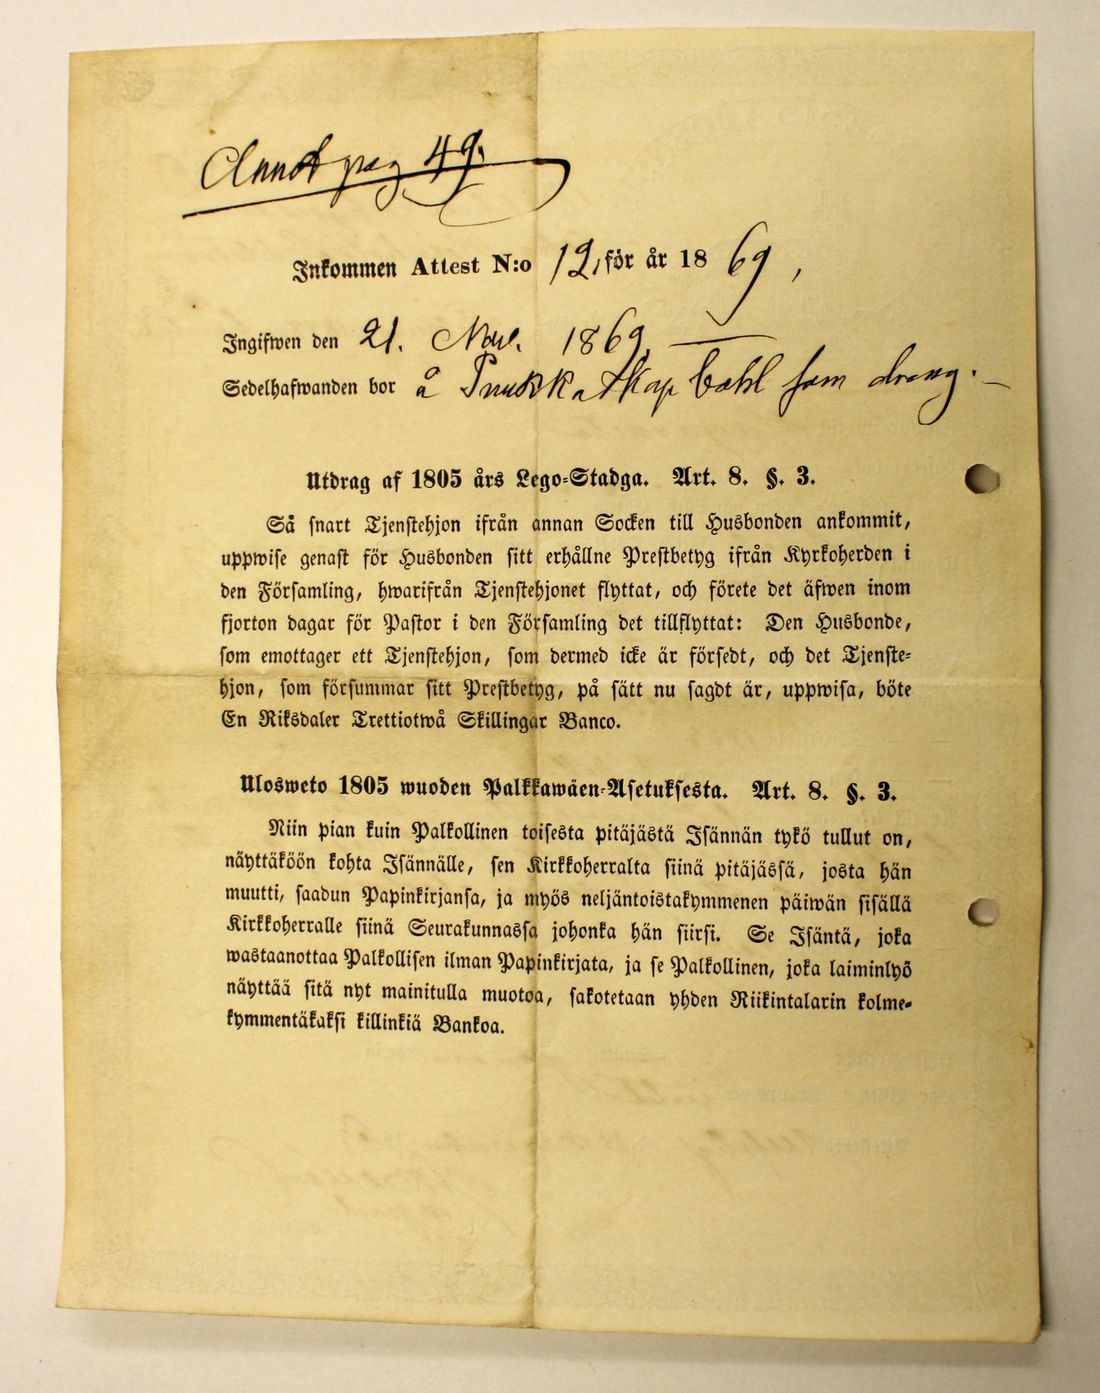 Annot pag 49.
Inkommen Attest N:o 12, för år 1869,
Ingifwen den 21. Nov. 1869.
Sedelhafwanden bor å som dreng.
Utdrag af 1805 års Lego-Stadga. Art. 8. §. 3.
Så snart Tjenstehjon ifrån annan Socken till Husbonden ankommit,
uppwise genast för Husbonden sitt erhållne Prestbetyg ifrån Kyrkoherden i
den Församling, hwarifrån Tjenstehjonet flyttat, och förete det äfwen inom
fjorton dagar för Pastor i den Församling det tillflyttat: Den Husbonde,
som emottager ett Tjenstehjon, som dermed icke är försedt, och det Tjenste-
hjon, som försummar sitt Prestbetyg, på sätt nu sagdt är, uppwisa, böte
En Riksdaler Trettiotwå Skillingar Banco.
Ulosweto 1805 wuoden Palkkawäen-Asetuksesta. Art. 8. §. 3.
Niin pian kuin Palkollinen toisesta pitäjästä Isännän tykö tullut on,
näyttäköön kohta Isännälle, sen Kirkkoherralta siinä pitäjässä, josta hän
muutti, saadun Papinkirjansa, ja myös neljäntoistakymmenen päiwän sisällä
Kirkkoherralle siinä Seurakunnassa johonka hän siirsi. Se Isäntä, joka
wastaanottaa Palkollisen ilman Papinkirjata, ja se Palkollinen, joka laiminlyö
näyttää sitä nyt mainitulla muotoa, sakotetaan yhden Riikintalarin kolme-
kymmentäkaksi killinkiä Bankoa.